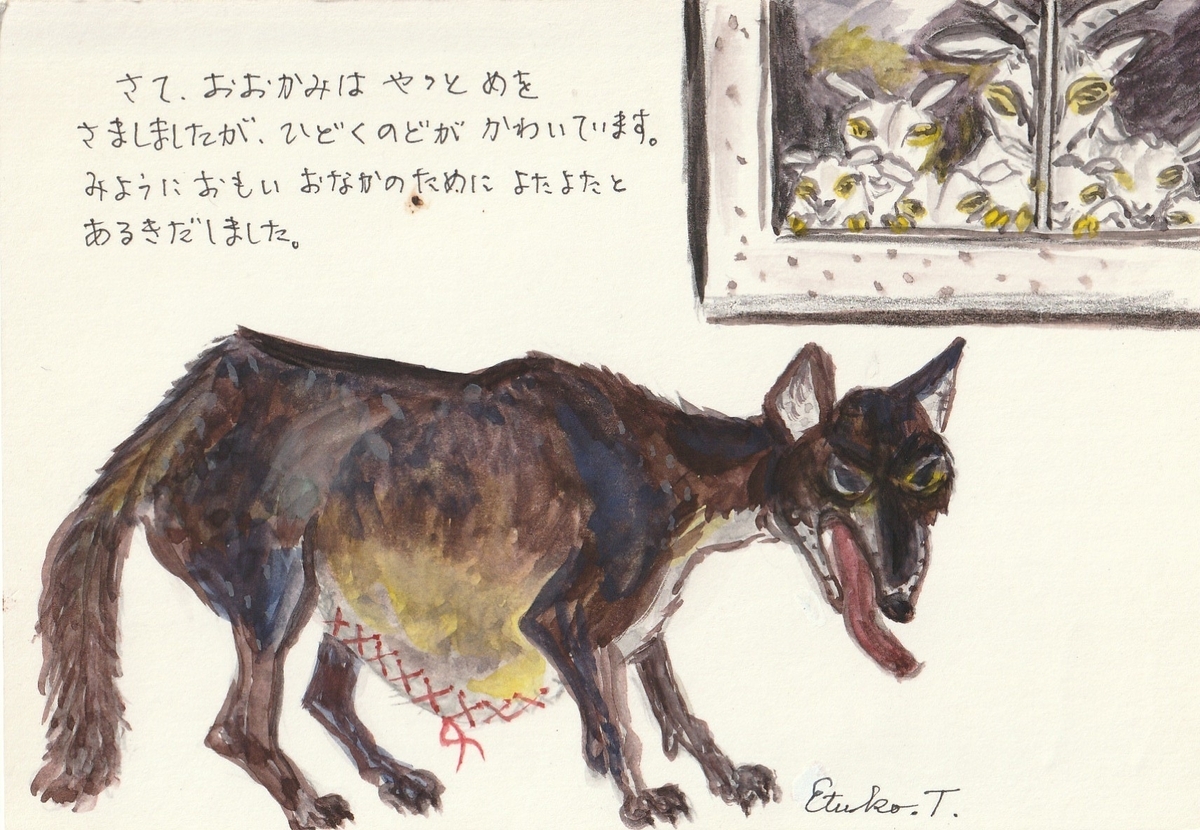 さて、おおかみは やっと めを
さましましたが、ひどくのどが かわいています。
みようにおもい おなかのために よたよたと
あるきだしました。
Etuko.T.